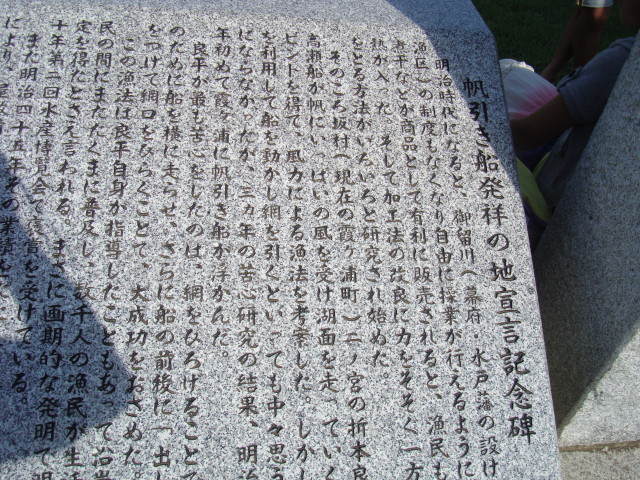 帆引き船発祥の地宣言記念碑
明治時代になると、御留川（幕府・水戸藩の設け
漁区）の制度もなくなり自由に操業が行えるように
煮干などが商品として有利に販売されると、漁民も
熱が入った。そして加工法の改良に力をそそぐ一方
をとる方法がいろいろと研究され始めた。
そのころ坂村（現在の霞ヶ浦町）二ノ宮の折本良
高瀬船が帆にいっぱいの風を受け湖面を走っていく
ヒントを得て、風力による漁法を考案した。しかし
を利用して船を動かし網を引くといっても中々思う
にならなかったが、三ヵ年の苦心研究の結果、明治
年初めて霞ヶ浦に帆引き船が浮かんだ。
良平が最も苦心をしたのは、網をひろげることで
のために船を横に走らせ、さらに船の前後に一出し
をつけて網口をひらくことで、大成功をおさめた。
この漁法は良平自身が指導したこともあって沿岸
民の間にまたたくまに普及し、数千人の漁民が生活
定を得たとさえ言われる。まさに画期的な発明で明
十年第二回水産博覧会で褒賞を受けている。
また明治四十五年その業績を
により